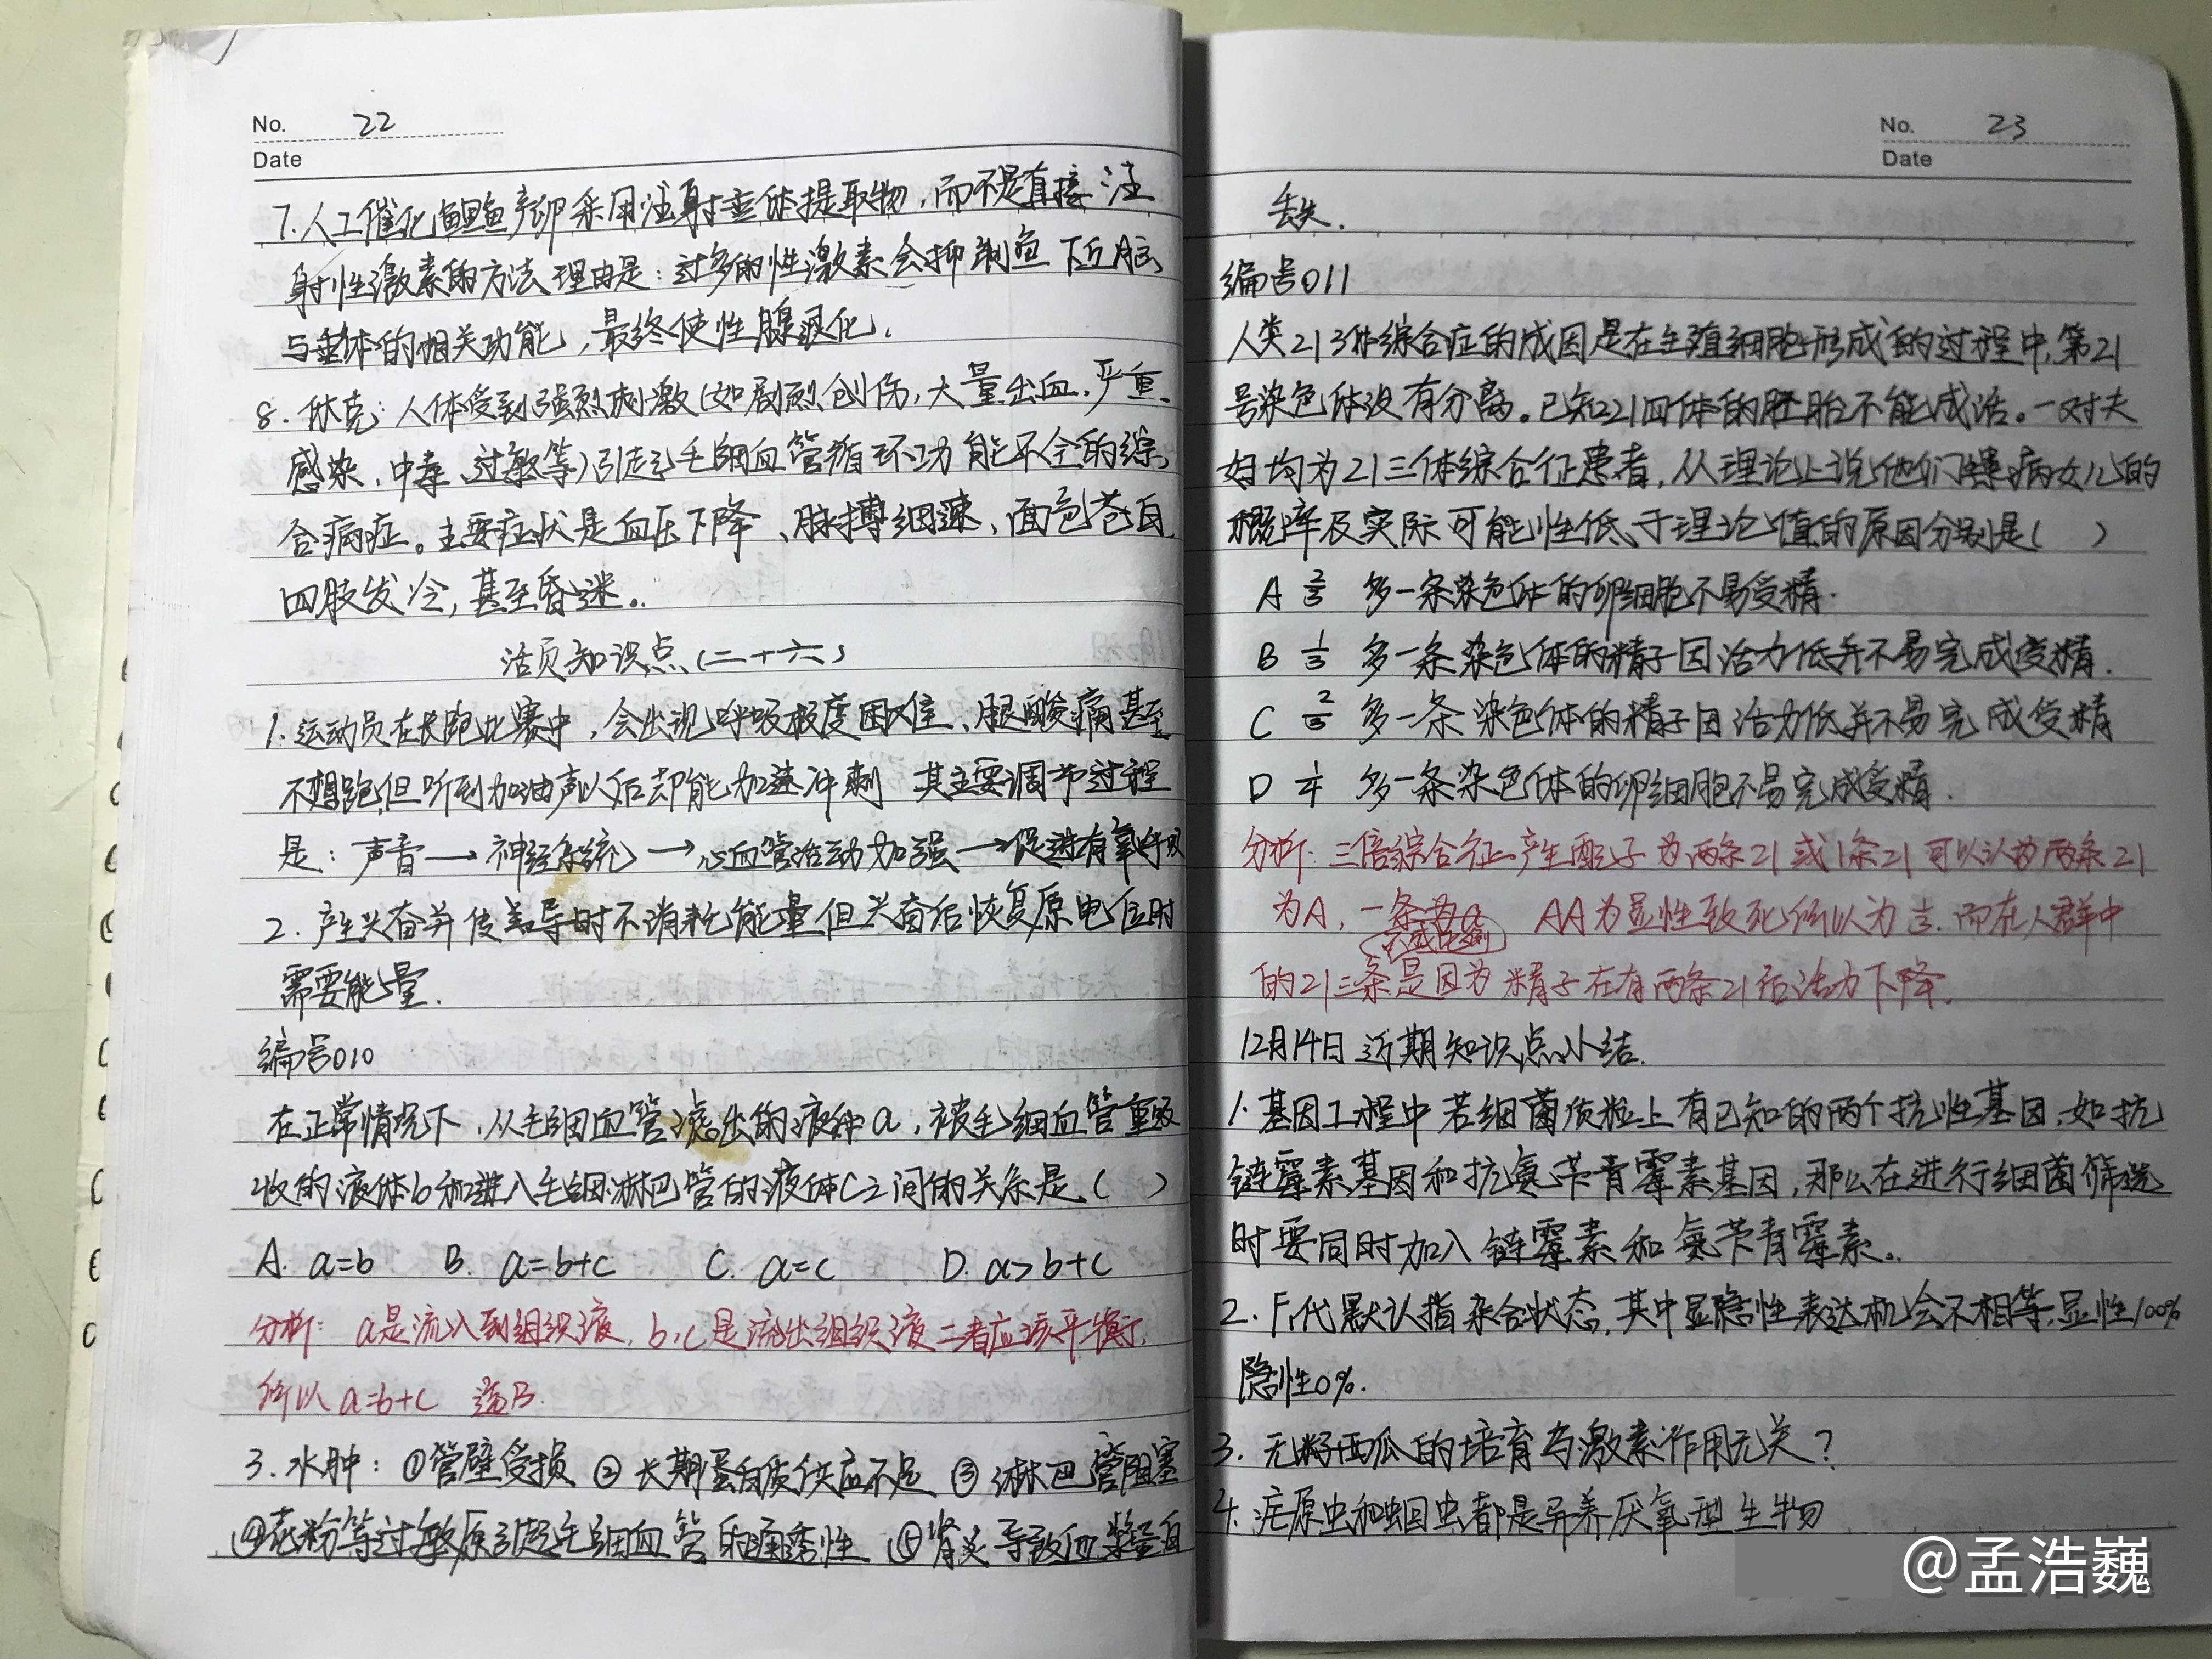 No. 22
Date
7.人工催化鲤鱼产卵采用注射垂体提取物,而不是直接注
射性激素的方法理由是:过多的性激素会抑制鱼下丘脑
与垂体的相关功能,最终使性腺退化.
8.休克:人体受到强烈刺激(如剧烈创伤,大量出血、严重
感染、中毒、过敏等)引起毛细血管循环功能不全的综
合病症。主要症状是血压下降、脉搏细速、面色苍白
四肢发冷,甚至昏迷..
活页知识点(二十六)
1.运动员在长跑比赛中,会出现呼吸极度困难、腿酸痛甚至
不想跑,但听到加油声以后却能加速冲刺 其主要调节过程
是:声音→神经系统→心血管活动加强→促进有氧呼吸
2.产生兴奋并传导时不消耗能量但兴奋后恢复原电位时
需要能量.
编号010
在正常情况下,从毛细血管滤出的液体a,被毛细血管重吸
收的液体b和进入毛细淋巴管的液体C之间的关系是( )
A. a=b B. a=b+c C. a=c D. a>b+c
分析: a是流入到组织液,b,c是流出组织液二者应该平衡,
所以 a=b+c 选B.
3.水肿:①管壁受损 ②长期蛋白质供应不足 ③淋巴管阻塞
④花粉等过敏原引起毛细血管的通透性 ⑤肾炎导致血浆蛋白
No. 23
Date
丢失.
编号011
人类21三体综合症的成因是在生殖细胞形成的过程中,第21
号染色体没有分离。已知21四体的胚胎不能成活。一对夫
妇均为21三体综合征患者,从理论上说他们患病女儿的
概率及实际可能性低于理论值的原因分别是( )
A 2/3 多一条染色体的卵细胞不易受精.
B 1/3 多一条染色体的精子因活力低并不易完成受精.
C 2/3 多一条染色体的精子因活力低并不易完成受精
D 1/4 多一条染色体的卵细胞不易完成受精.
分析:三倍综合征产生配子为两条21或1条21可以认为两条21
为A,一条为a AA为显性致死所以为1/3.而在人群中
的21三条是因为精子在有两条21后活力下降.
12月14日近期知识点小结.
1.基因工程中若细菌质粒上有已知的两个抗性基因,如抗
链霉素基因和抗氨苄青霉素基因,那么在进行细菌筛选
时要同时加入链霉素和氨苄青霉素..
2.F₁代默认指杂合状态,其中显隐性表达机会不相等,显性100%
隐性0%.
3.无籽西瓜的培育与激素作用无关?
4.疟原虫和蛔虫都是异养厌氧型生物
@孟浩巍